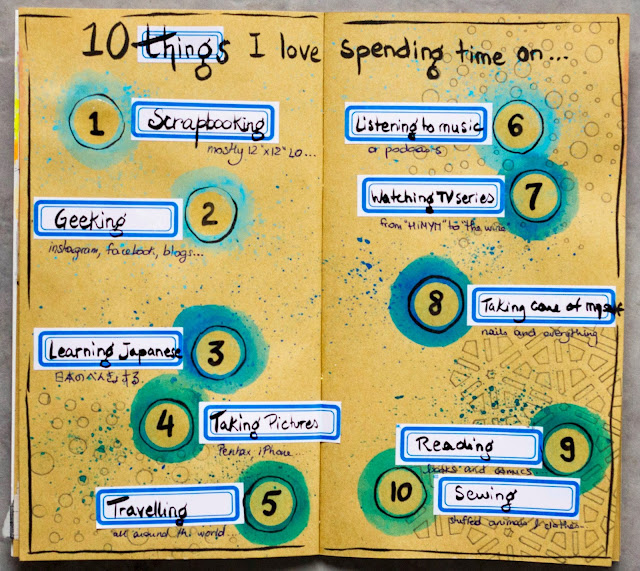 10 things I love spending time on...
1
Scrapbooking
mostly 12"x12" LO...
2
Geeking
instagram, facebook, blogs...
3
Learning Japanese
日本のべんきょする.
4
Taking Pictures
Pentax, iPhone
5
Travelling
all around the world...
6
Listening to music
or podcasts
7
Watching TV series
from "HIMYM" to "the wire
8
Taking care of myself
nails and everything
9
Reading
books and comics...
10
Sewing
stuffed animals & clothes...